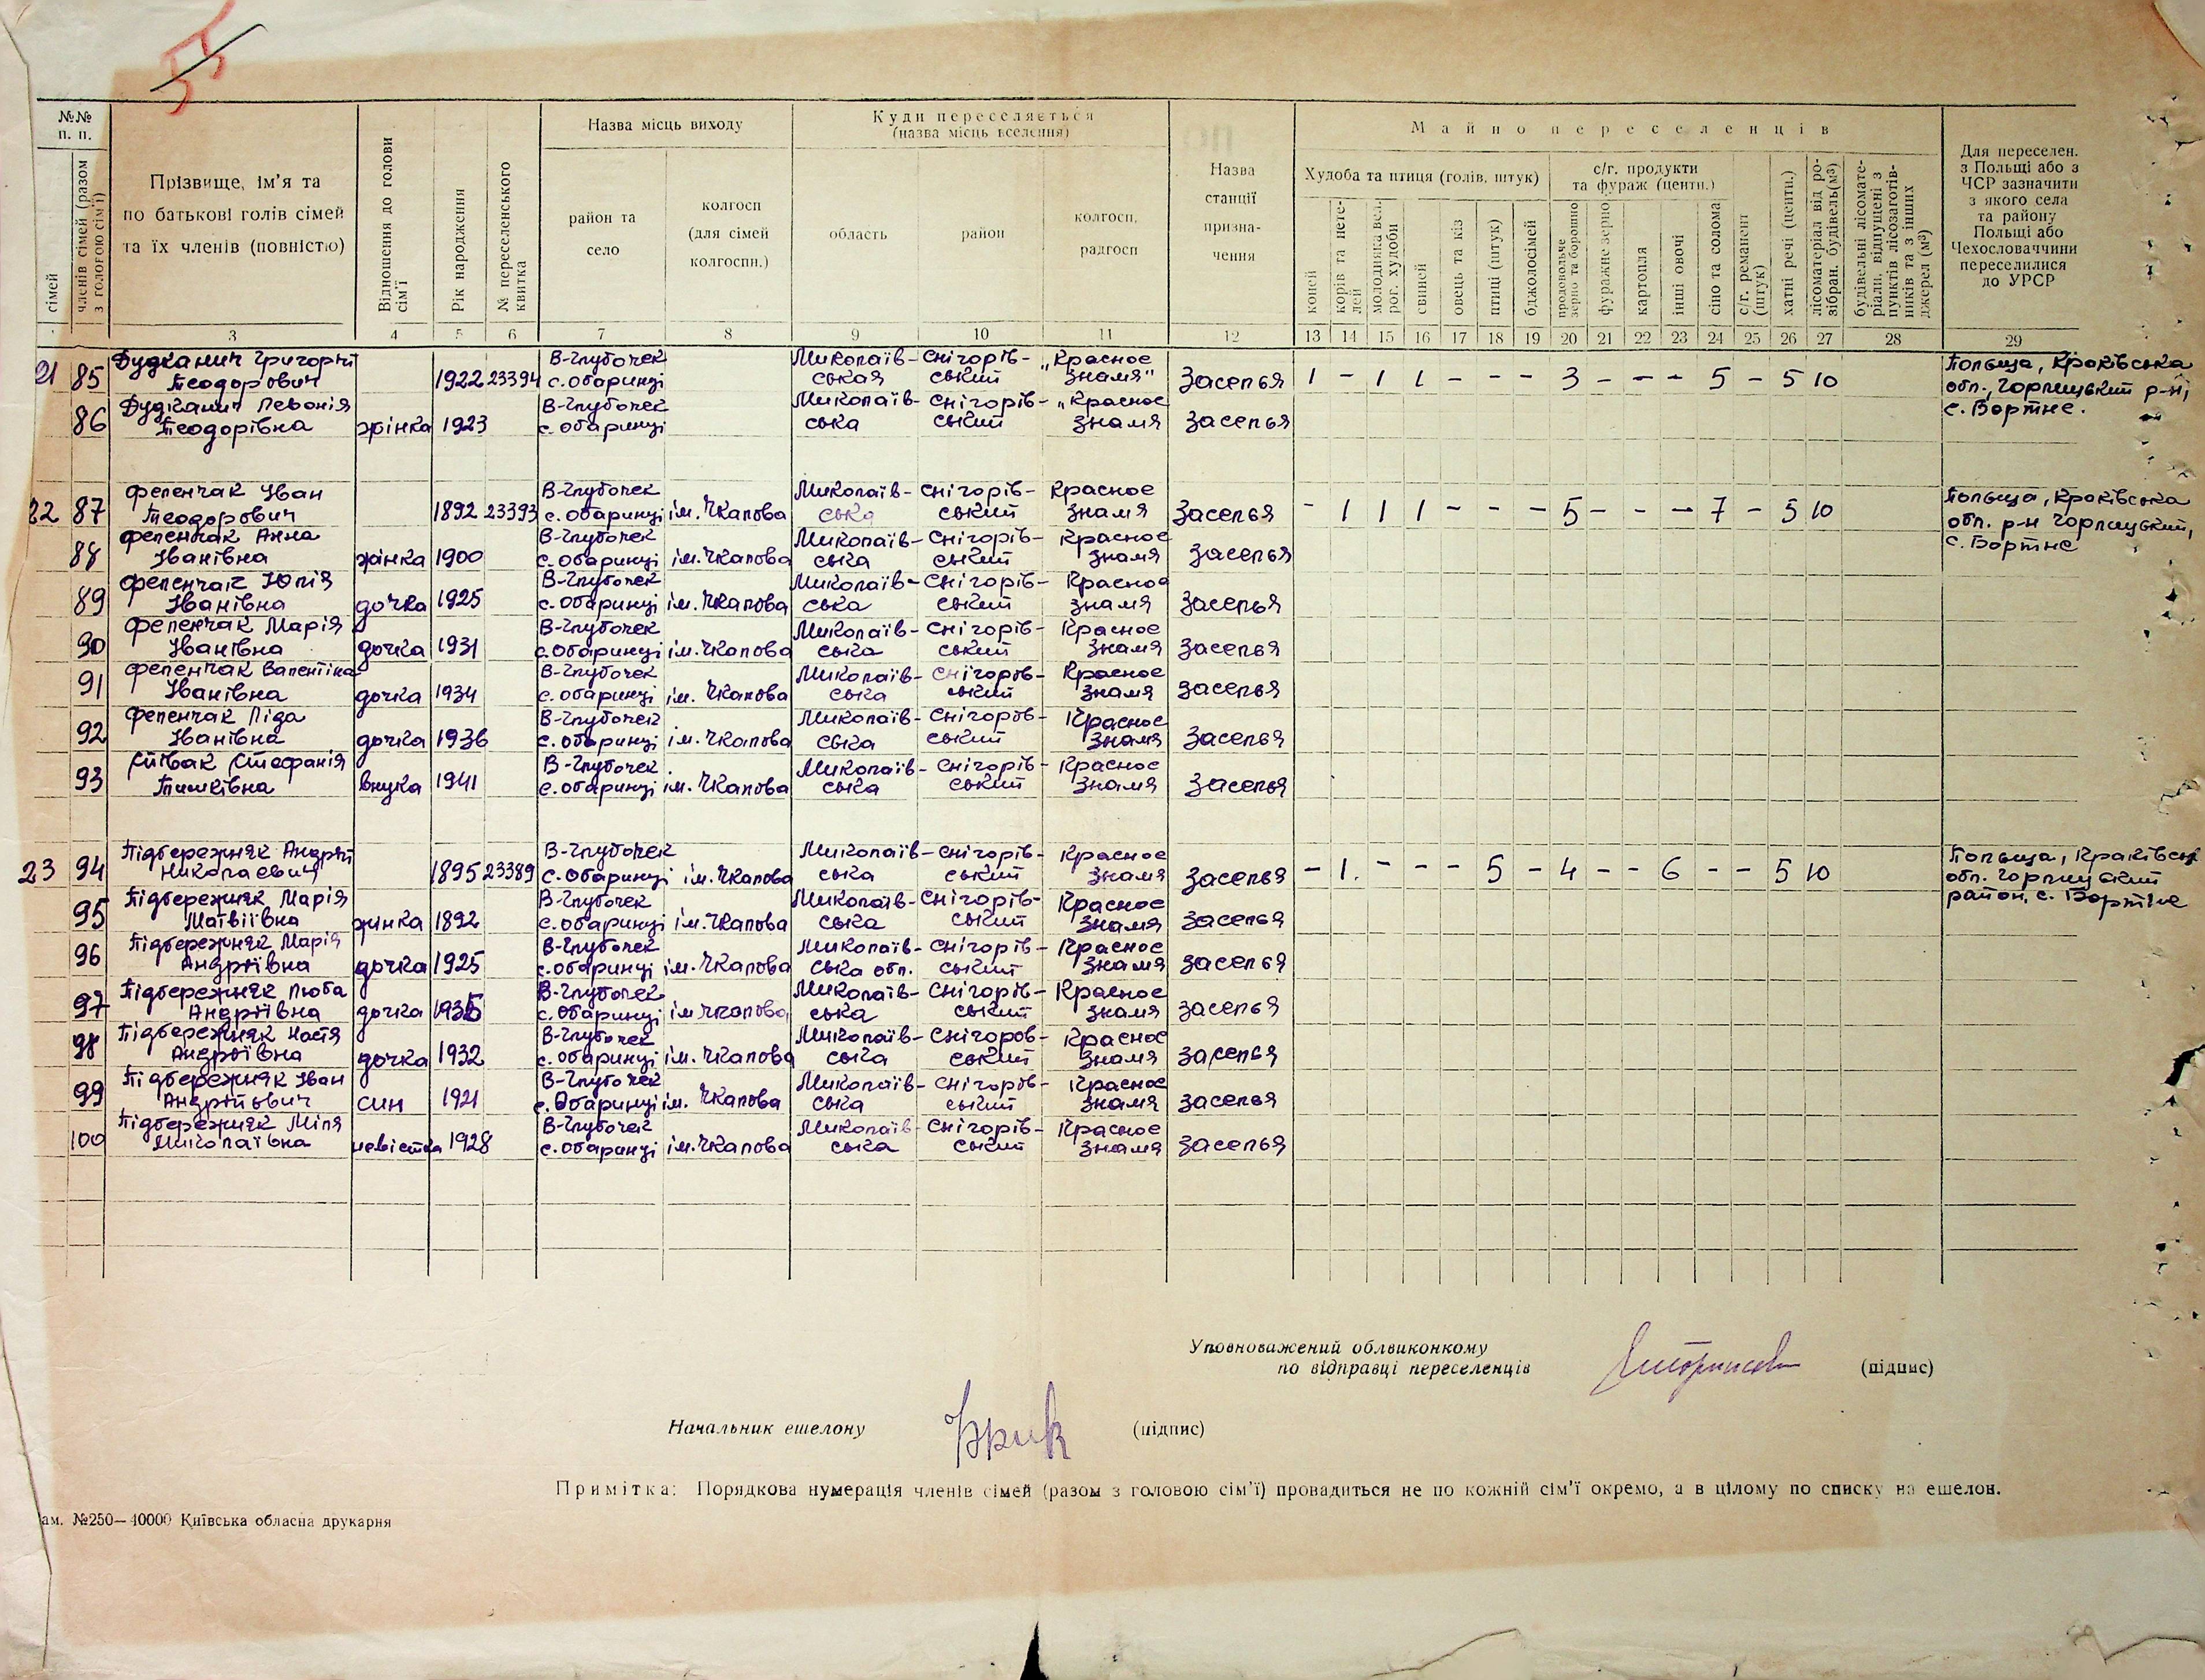 55
№№ п. п.
сімей
членів сімей (разом з головою сім'ї)
Прізвище, ім'я та по батькові голів сімей та їх членів (повністю)
Відношення до голови сім'ї
Рік народження
№ переселенського квитка
Назва місць виходу
район та село
колгосп (для сімей колгоспн.)
Куди переселяється (назва місць вселення)
область
район
колгосп, радгосп
Назва станції призначення
Майно переселенців
Худоба та птиця (голів, штук)
коней
корів та нетелей
молодняка вел. рог. худоби
свиней
овець та кіз
птиці (штук)
бджолосімей
с/г. продукти та фураж (центн.)
продовольче зерно та борошно
фуражне зерно
картопля
інші овочі
сіно та солома
с/г. реманент (штук)
хатні речі (центн.)
лісоматеріал від розібран. будівель (м³)
будівельні лісоматеріали, відпущені з пунктів лісозаготівників та з інших джерел (м³)
Для переселен. з Польщі або з ЧСР зазначити з якого села та району Польщі або Чехословаччини переселилися до УРСР
3 4 5 6 7 8 9 10 11 12 13 14 15 16 17 18 19 20 21 22 23 24 25 26 27 28 29
21 85 Дудканич Григорій Теодорович 1922 23394 В-Глубочек с. Обаринці Миколаївськая Снігорівський „Красное знамя" Заселья 1 - 1 1 - - - 3 - - - 5 - 5 10 Польща, Краківська обл., Горлицький р-н, с. Бортне.
86 Дудканич Левонія Теодорівна жінка 1923 В-Глубочек с. Обаринці Миколаївська Снігорівський „Красное знамя Заселья
22 87 Феленчак Іван Теодорович 1892 23393 В-Глубочек с. Обаринці ім. Чкалова Миколаївська Снігорівський Красное знамя Заселья - 1 1 1 - - - 5 - - - 7 - 5 10 Польща, Краківська обл. р-н Горлицький, с. Бортне
88 Феленчак Анна Іванівна жінка 1900 В-Глубочек с. Обаринці ім. Чкалова Миколаївська Снігорівський Красное знамя Заселья
89 Феленчак Юлія Іванівна дочка 1925 В-Глубочек с. Обаринці ім. Чкалова Миколаївська Снігорівський Красное знамя Заселья
90 Феленчак Марія Іванівна дочка 1931 В-Глубочек с. Обаринці ім. Чкалова Миколаївська Снігорівський Красное знамя Заселья
91 Феленчак Валентіна Іванівна дочка 1934 В-Глубочек с. Обаринці ім. Чкалова Миколаївська Снігоровський Красное знамя Заселья
92 Феленчак Ліда Іванівна дочка 1936 В-Глубочек с. Обаринці ім. Чкалова Миколаївська Снігоровський Красное знамя Заселья
93 Співак Стефанія Тимківна внука 1941 В-Глубочек с. Обаринці ім. Чкалова Миколаївська Снігорівський Красное знамя Заселья
23 94 Підбережняк Андрій Николаевич 1895 23389 В-Глубочек с. Обаринці ім. Чкалова Миколаївська Снігорівський Красное знамя Заселья - 1. - - - 5 - 4 - - 6 - - 5 10 Польща, Краківськ обл. Горлицький район, с. Бортне
95 Підбережняк Марія Матвіївна жинка 1892 В-Глубочек с. Обаринці ім. Чкалова Миколаївська Снігорівський Красное знамя Заселья
96 Підбережняк Марія Андріївна дочка 1925 В-Глубочек с. Обаринці ім. Чкалова Миколаївська обл. Снігорівський Красное знамя Заселья
97 Підбережняк Люба Андріївна дочка 1935 В-Глубочек с. Обаринці ім Чкалова Миколаївська Снігорівський Красное знамя Заселья
98 Підбережняк Настя Андріївна дочка 1932 В-Глубочек с. Обаринці ім. Чкалова Миколаївська Снігоровський Красное знамя Заселья
99 Підбережняк Іван Андрійович син 1921 В-Глубочек с. Обаринці ім. Чкалова Миколаївська Снігоровський Красное знамя Заселья
100 Підбережняк Міля Миколаївна невістка 1928 В-Глубочек с. Обаринці ім. Чкалова Миколаївська Снігорівський Красное знамя Заселья
Уповноважений облвиконкому
по відправці переселенців (підпис)
Начальник ешелону (підпис)
Примітка: Порядкова нумерація членів сімей (разом з головою сім'ї) провадиться не по кожній сім'ї окремо, а в цілому по списку на ешелон.
ам. №250—40000 Київська обласна друкарня